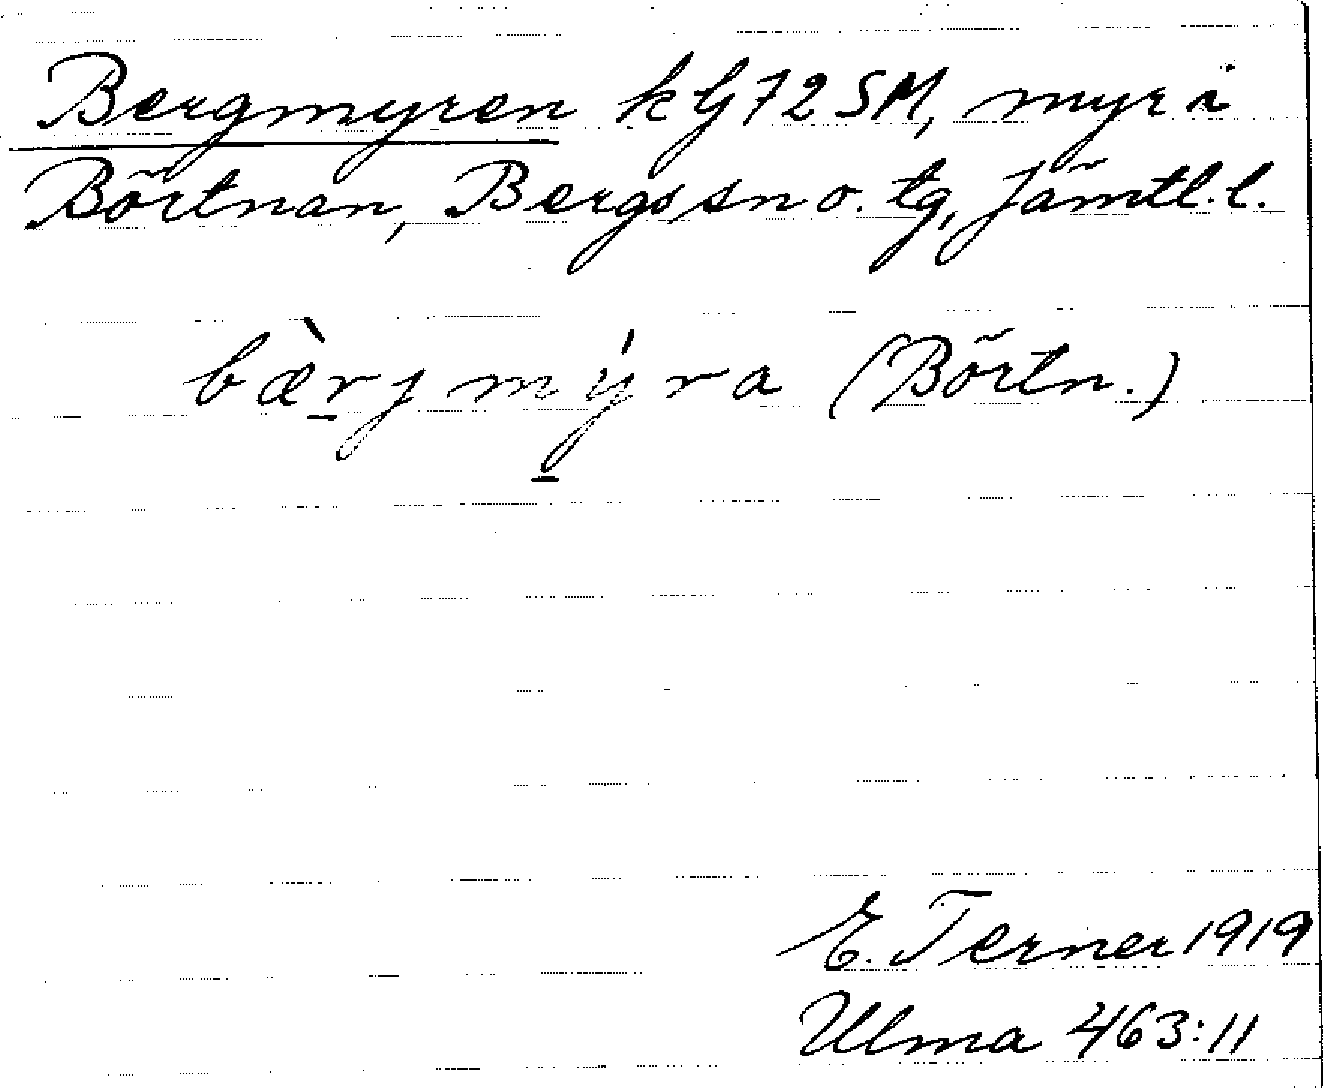 Bergmyren kG72SM, myr i
Börtnan, Bergs sn o. tg, Jämtl. l.
bæ̀rjmýra (Börtn.)
E. Terner 1919
Ulma 463:11